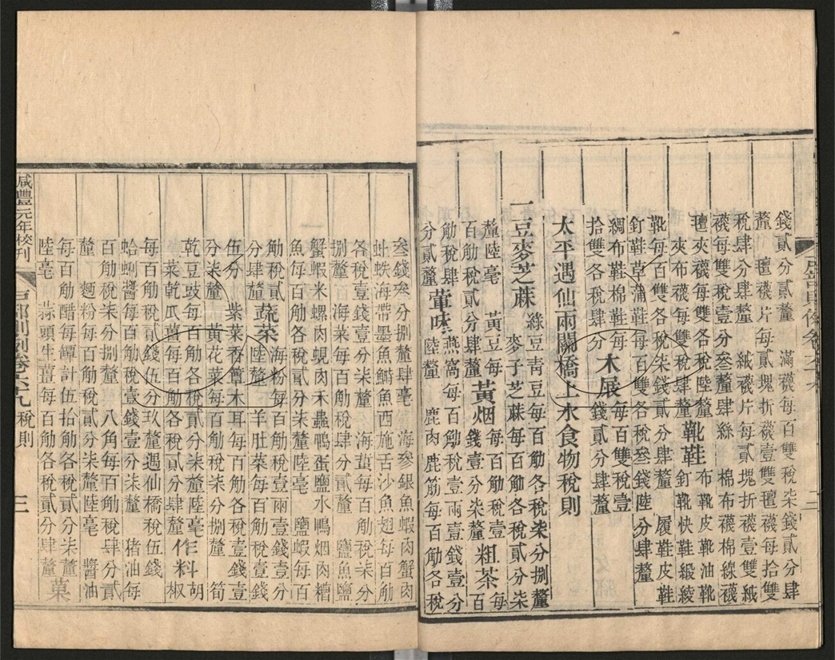 錢貳分貳釐 滿襪每百雙稅柒錢貳分肆
釐 氊襪片每貳塊折襪壹雙氊襪每拾雙
稅肆分肆釐 紙襪片每貳塊折襪壹雙紙
襪每雙稅壹分叁釐肆絲 棉布襪棉線襪
氊夾襪每百雙各稅陸錢
夾布襪每百雙稅肆釐靴鞋布靴皮靴油靴
靴每百雙各稅柒錢貳分肆釐 履鞋皮鞋
釘鞋草蒲鞋每百雙各稅叁錢陸分肆釐
綢布鞋棉鞋每
拾雙各稅肆分木屐每百雙稅壹
錢貳分肆釐
太平遇仙兩關橋上水食物稅則
一豆麥芝蔴綠豆青豆每百觔各稅柒分捌釐
麥子芝蔴每百觔各稅貳分柒
釐陸毫 黃豆每黃烟每百觔稅壹
百觔稅貳分肆釐錢壹分柒釐粗茶每百
觔稅肆 燕窩每百觔稅壹兩壹錢壹分
分貳釐葷味陸釐 鹿肉鹿筋每百觔各稅
叁錢叁分捌釐肆毫 海參銀魚蝦肉蟹肉
蚶蛛海帶墨魚鱅魚西施舌沙魚翅每百觔
各稅壹錢壹分柒釐 海蜇每百觔稅柒分
捌釐 海菜每百觔稅肆分貳釐 鹽魚鹽
蟹蝦米螺肉蜆肉禾蟲鴨蛋鹽水鴨烟肉糟
魚每百觔各稅貳分柒釐陸毫 鹽蝦每百
觔稅貳蔬菜海粉每百觔稅壹兩壹錢壹分
分肆釐陸釐 羊肚菜每百觔稅壹錢
伍分 紫菜香蕈木耳每百觔各稅壹錢壹
分柒釐 黃花菜每百觔稅柒分捌釐 筍
乾豆豉每百觔各稅貳分柒釐陸毫 冬
菜乾瓜薑每百觔各稅貳分肆釐作料胡椒
每百觔稅貳錢伍分玖釐遇仙橋稅伍錢
蛤蜊醬每百觔稅壹錢壹分柒釐 猪油每
百觔稅柒分捌釐 八角每百觔稅肆分貳
釐 麵粉每百觔稅貳分柒釐陸毫 醬油
每百觔醋每罈計伍拾觔各稅貳分柒釐
陸毫 蒜頭生薑每百觔各稅貳分肆釐菓
咸豐元年校刊
戶部則例卷六十九稅則
三